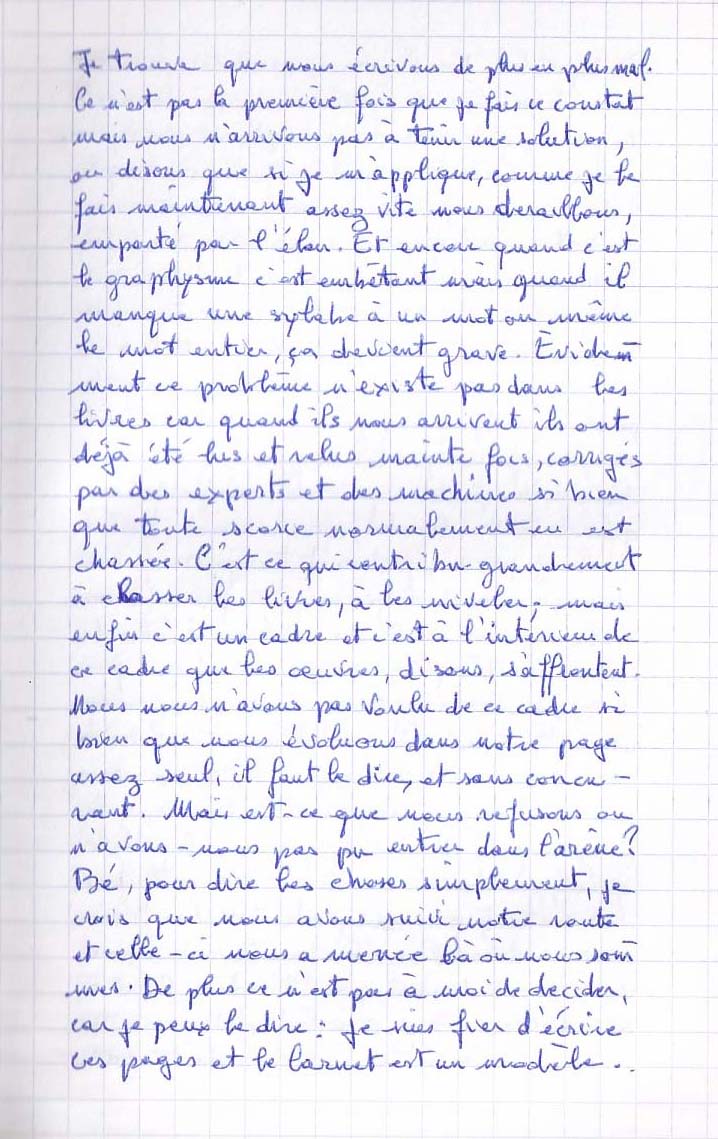 Je trouve que nous écrivons de plus en plus mal.
Ce n'est pas la première fois que je fais ce constat
mais nous n'arrivons pas à tenir une solution,
ou disons que si je m'applique, comme je le
fais maintenant assez vite nous deraillons,
emporté par l'élan. Et encore quand c'est
le graphysme c'est embêtant mais quand il
manque une sylabe à un mot ou même
le mot entier, ça devient grave. Evidem
ment ce problème n'existe pas dans les
livres car quand ils nous arrivent ils ont
déjà été lus et relus mainte fois, corrigés
par des experts et des machines si bien
que toute scorie normalement en est
chassée. C'est ce qui contribu grandement
à classer les livres, à les niveler; mais
enfin c'est un cadre et c'est à l'intérieur de
ce cadre que les œuvres, disons, s'affrontent.
Nous nous n'avons pas voulu de ce cadre si
bien que nous évoluons dans notre page
assez seul, il faut le dire, et sans concu-
rant. Mais est-ce que nous refusons ou
n'avons-nous pas pu entrer dans l'arène?
Bé, pour dire les choses simplement, je
crois que nous avons suivi notre route
et celle-ci nous a menée là où nous som
mes. De plus ce n'est pas à moi de decider,
car je peux le dire: je suis fier d'écrire
ces pages et le carnet est un modèle..